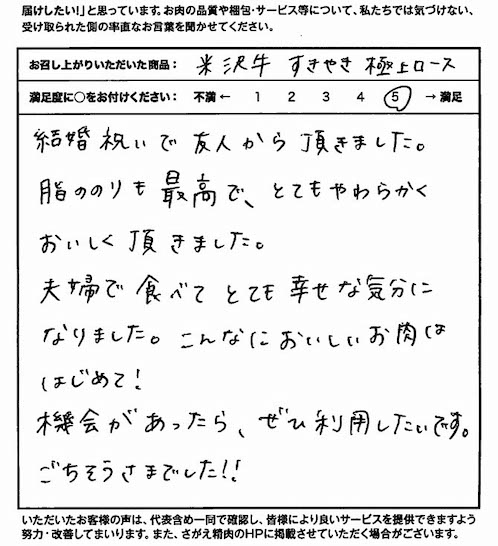 届けしたい!」と思っています。お肉の品質や梱包・サービス等について、私たちでは気づけない、
受け取られた側の率直なお言葉を聞かせてください。
お召し上がりいただいた商品: 米沢牛 すきやき 極上ロース
満足度に○をお付けください: 不満 ← 1 2 3 4 5 → 満足
結婚祝いで友人から頂きました。
脂ののりも最高で、とてもやわらかく
おいしく頂きました。
夫婦で食べてとても幸せな気分に
なりました。こんなにおいしいお肉は
はじめて!
機会があったら、ぜひ利用したいです。
ごちそうさまでした!!
いただいたお客様の声は、代表含め一同で確認し、皆様により良いサービスを提供できますよう
努力・改善してまいります。また、さがえ精肉のHPに掲載させていただく場合がございます。